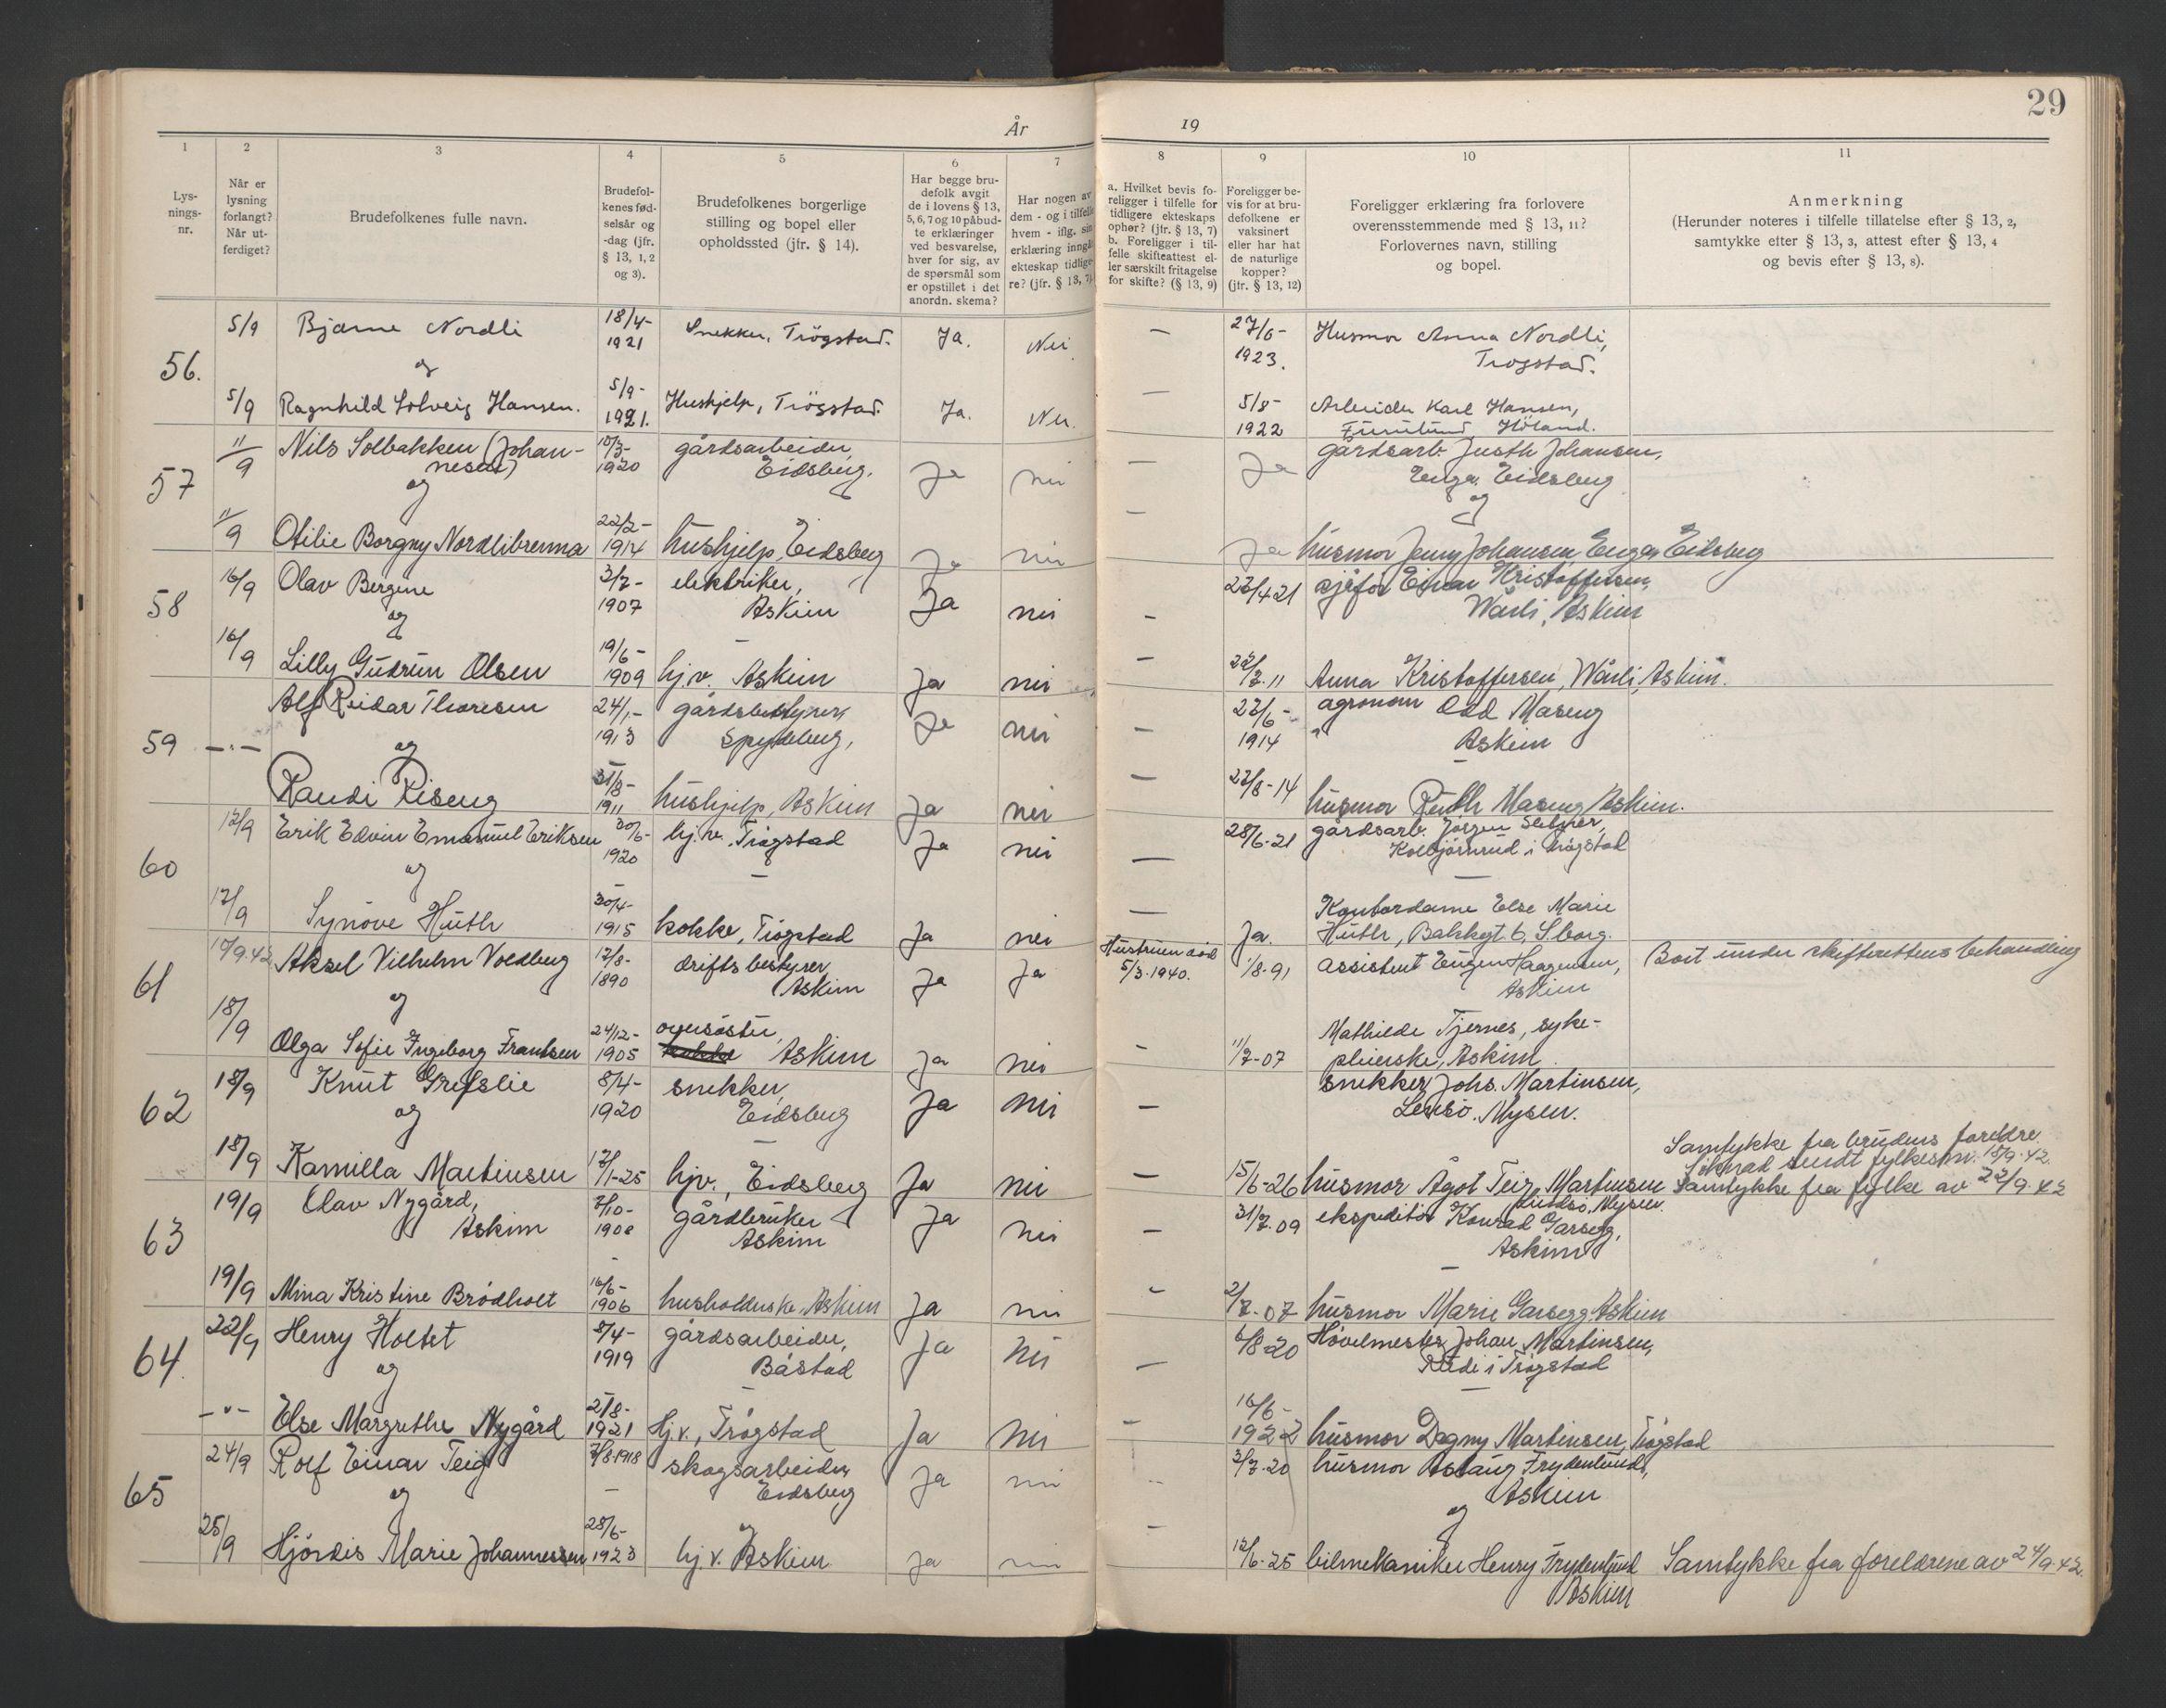 29
År 19
1 2 3 4 5 6 7 8 9 10 11
Lys-
nings-
nr.
Når er
lysning
forlangt?
Når ut-
ferdiget?
Brudefolkenes fulle navn.
Brudefol-
kenes fød-
selsår og
-dag (jfr.
§ 13, 1, 2
og 3).
Brudefolkenes borgerlige
stilling og bopel eller
opholdssted (jfr. § 14).
Har begge bru-
defolk avgit
de i lovens § 13,
5, 6, 7 og 10 påbud-
te erklæringer
ved besvarelse,
hver for sig, av
de spørsmål som
er opstillet i det
anordn. skema?
Har nogen av
dem - og i tilfelle
hvem - iflg. sin
erklæring inngå
ekteskap tidlige-
re? (jfr. § 13, 7)
a. Hvilket bevis fo-
religger i tilfelle for
tidligere ekteskaps
ophør? (jfr. § 13, 7)
b. Foreligger i til-
felle skifteattest el-
ler særskilt fritagelse
for skifte? (§ 13, 9)
Foreligger be-
vis for at bru-
defolkene er
vaksinert
eller har hat
de naturlige
kopper?
(jfr. § 13, 12)
Foreligger erklæring fra forlovere
overensstemmende med § 13, 11?
Forlovernes navn, stilling
og bopel.
Anmerkning
(Herunder noteres i tilfelle tillatelse efter § 13, 2,
samtykke efter § 13, 3, attest efter § 13, 4
og bevis efter § 13, 8).
56.
5/9 Bjarne Nordli 18/4- 1921 Snekker, Trögstad. Ja. Nei — 27/6- 1923. Husmor Anna Nordli,
Trögstad.
og
5/9 Ragnhild Solveig Hansen. 5/9- 1921. Hushjelp, Trögstad. Ja. Nei. — 5/8- 1922 Arbeider Karl Hansen,
Furulund, Höland.
57
11/9 Nils Solbakken (Johan-
nesen) 10/3- 1920 gårdsarbeider,
Eidsberg. Ja nei — Ja gårdsarb. Justh Johansen,
Enga, Eidsberg
og og
11/9 Otilie Borgny Nordlibrenna 22/2- 1914 hushjelp, Eidsberg Ja nei — Ja husmor Jenny Johansen, Enga, Eidsberg
58
16/9 Olav Bergene 3/7- 1907 elektriker,
Askim Ja nei — 23/4 21 sjåfør Einar Kristoffersen,
Wårli, Askim
og
16/9 Lilly Gudrun Olsen 19/6- 1909 hj.v. Askim Ja nei — 22/7. 11 Anna Kristoffersen, Wårli, Askim.
59
—"— Alf Reidar Thoresen 24/1- 1913 gårdsbestyrer,
Spydeberg, Ja nei — 23/6- 1914 agronom Odd Maseng
Askim
og
Randi Riseng 31/8- 1911 hushjelp, Askim Ja nei — 23/8-14 husmor Ruth Maseng, Askim.
60
17/9 Erik Edvin Emanuel Eriksen 30/6- 1920 hj.v. Trögstad Ja nei — 28/6-21 gårdsarb. Jörgen
Kolbjörnrud i Trögstad
og
17/9 Synöve Huth 30/4- 1915 kokke, Trögstad Ja nei — Ja. Kontordame Else Marie
Huth, Bakkegt. 6, S.borg.
61
10/9.42 Aksel Vilhelm Voldberg 17/8- 1890 driftsbestyrer
Askim Ja Ja Hustruen död
5/3.1940. 1/8-91 assistent Eugen Haagensen,
Askim Boet under skifterettens behandling
og
18/9 Olga Sofie Ingeborg Frantsen 24/12- 1905 oversöster,
kokke Askim Ja nei — 11/7-07 Mathilde Tjernes, syke-
pleierske, Askim.
62
18/9 Knut Grefslie 8/4- 1920 snekker,
Eidsberg Ja nei — snekker Johs. Martinsen,
Mysen.
og
18/9 Kamilla Martinsen 17/1-25 hjv., Eidsberg Ja nei — 15/6-26 husmor Ågot Teig Martinsen
Mysen.
Samtykke fra brudens foreldre.
Söknad sendt fylkesm. 18/9.42.
Samtykke fra fylke av 22/9.42
63
19/9 Olav Nygård,
Askim 7/10- 1908 gårdbruker
Askim Ja nei — 31/7.09 ekspeditör Konrad Garsegg,
Askim
19/9 Mina Kristine Brödholt 16/6- 1906 husholderske, Askim Ja nei - 2/7-07 husmor Marie Garsegg, Askim
64.
22/9 Henry Holtet 8/4- 1919 gårdsarbeider,
Båstad Ja nei — 6/8-20 Hövelmester Johan Martinsen,
i Trögstad
og
—"— Else Margrethe Nygård 27/8- 1921 Hj.v., Trögstad Ja nei — 16/6- 1922 husmor Dagny Martinsen, Trögstad
65
24/9 Rolf Einar Teig 7/8-1918 skogsarbeider
Eidsberg Ja nei — 3/7-20 husmor Aslaug Frydenlund,
Askim
og og
25/9 Hjördis Marie Johannessen 28/6- 1923 hj.v. Askim Ja nei — 12/6-25 bilmekaniker Henry Frydenlund
Askim Samtykke fra foreldrene av 24/9.42.